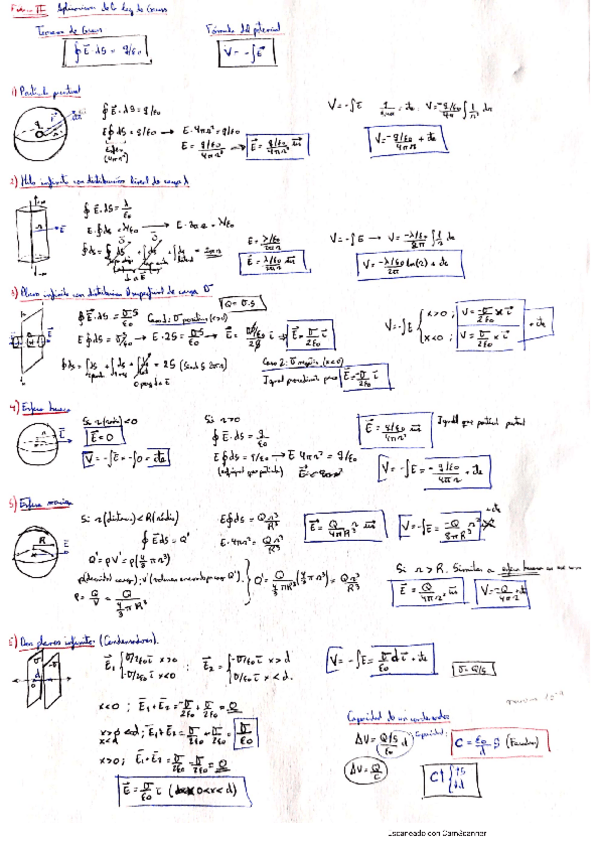 Tema II Aplicaciones de la Ley de Gauss
Teorema de Gauss
∮E⃗·dS = q/ε0
Fórmula del potencial
V = -∫E⃗
1) Partícula puntual
∮E⃗·dS = q/ε0
E∮dS = q/ε0 → E·4πr² = q/ε0
E = q/ε0 / 4πr² → E⃗ = q/ε0 / 4πr² u⃗r
V = -∫E
V = -q/ε0 / 4π ∫ 1/r² dr
2) Hilo infinito con distribución lineal de carga λ
∮E⃗·dS = λ/ε0
E·∮dS = λ/ε0 → E·2πr = λ/ε0
E = λ/ε0 / 2πr
E⃗ = λ/ε0 / 2πr u⃗r
V = -∫E → V = -λ/ε0 / 2π ∫ 1/r dr
V = -λ/ε0 / 2π ln(r) + cte
3) Plano infinito con distribución superficial de carga σ
Q = σ·S
∮E⃗·dS = σS/ε0
Caso 1: σ positiva (x>0)
E∮dS = σS/ε0 → E·2S = σS/ε0 → E⃗ = σ/2ε0 i
Caso 2: σ negativa (x<0)
Igual procedimiento pero E⃗ = -σ/2ε0 i
V = -∫E
x>0 ; V = -σ/2ε0 x i
x<0 ; V = σ/2ε0 x i
+ cte
4) Esfera hueca
Si r(radio)<0
E⃗ = 0
V = -∫E = -∫0 = cte
Si r>0
∮E⃗·dS = q/ε0
E∮dS = q/ε0 → E 4πr² = q/ε0
E⃗ = q/ε0 / 4πr² u⃗r
Igual que partícula puntual
V = -∫E = -q/ε0 / 4πr + cte
5) Esfera maciza
Si r(distanc) < R(radio)
∮E⃗dS = Q'
Q' = ρV' = ρ(4/3 πr³)
ρ = Q/V = Q / 4/3 πR³
Q' = Q / 4/3 πR³ (4/3 πr³) = Qr³/R³
E∮dS = Q r³/R³
E·4πr² = Q r³/R³
E⃗ = Q / 4πR³ r u⃗r
V = -∫E = -Q / 8πR³ r² + cte
Si r > R. Similar a esfera hueca
E⃗ = Q / 4πr² u⃗r
6) Dos planos infinitos (Condensadores).
E⃗1 { σ/2ε0 i x>0
-σ/2ε0 i x<0
; E⃗2 = { -σ/2ε0 i x>d
σ/2ε0 i x<d.
V = -∫E = σ/ε0 d i + cte
σ = Q/S
x<0 ; E⃗1+E⃗2 = -σ/2ε0 + σ/2ε0 = 0
E⃗1+E⃗2 = σ/2ε0 + σ/2ε0 = σ/ε0
x>0 ; E⃗1+E⃗2 = σ/2ε0 - σ/2ε0 = 0
E⃗ = σ/ε0 i (0<x<d)
Capacidad de un condensador
ΔV = Q/S / ε0 d
Capacidad:
C = ε0/d S (Faradios)
ΔV = Q/C
C↑ { ↑S
↓d
Escaneado con CamScanner